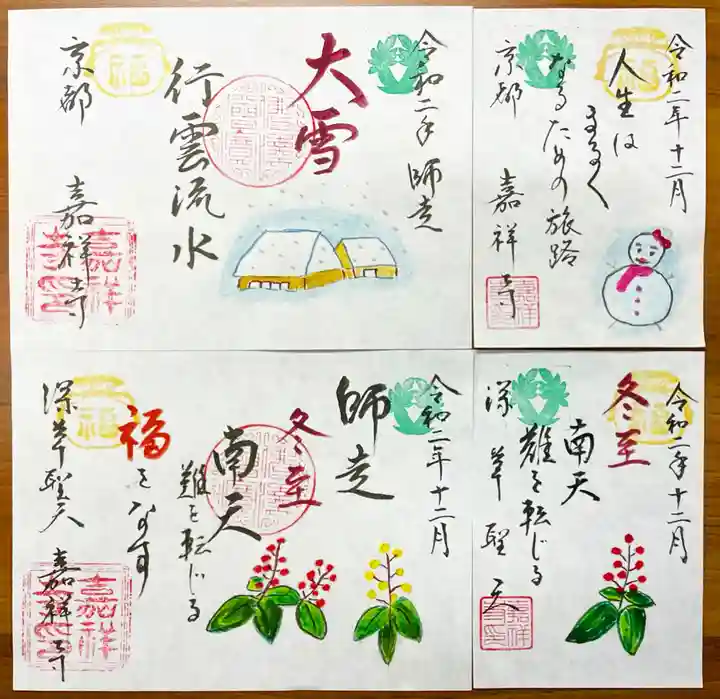 令和二年師走
大雪
行雲流水
京都
嘉祥寺
福
嘉祥
令和二年十二月
人生は
まるく
なるための旅路
京都
嘉祥寺
福
令和二年十二月
師走
冬至
南天
難を転じる
福をなす
深草聖天
嘉祥寺
福
嘉祥
令和二年十二月
冬至
南天
難を転じる
深草聖天
嘉祥